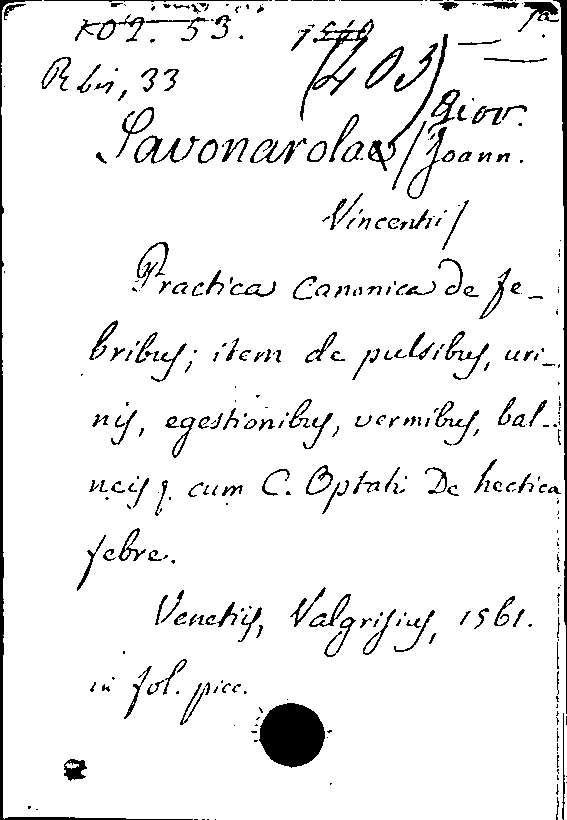 KO2. 53.
R bis, 33
(403)
Giov.
Savonarolae / Joann.
Vincentii /
Practica canonica de fe-
bribus; item de pulsibus, uri-
nis, egestionibus, vermibus, bal-
neis; cum C. Optati De hectica
febre.
Venetiis, Valgrisius, 1561.
in fol. picc.